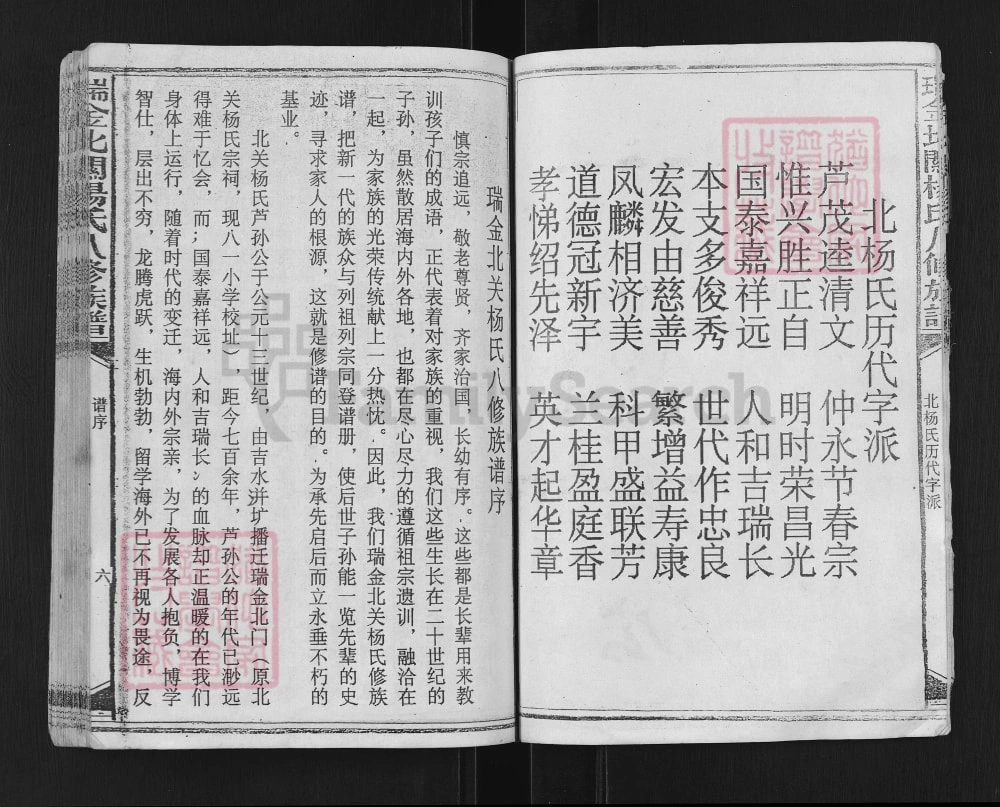 北杨氏历代字派
芦茂逵清文 仲永节春宗
惟兴胜正自 明时荣昌光
国泰嘉祥远 人和吉瑞长
本支多俊秀 世代作忠良
宏发由慈善 繁增益寿康
凤麟相济美 科甲盛联芳
道德冠新宇 兰桂盈庭香
孝悌绍先泽 英才起华章
北杨氏历代字派
瑞金北关杨氏八修族谱序
慎宗追远，敬老尊贤，齐家治国，长幼有序。这些都是长辈用来教
训孩子们的成语，正代表着对家族的重视，我们这些生长在二十世纪的
子孙，虽然散居海内外各地，也都在尽心尽力的遵循祖宗遗训，融洽在
一起，为家族的光荣传统献上一分热忱。因此，我们瑞金北关杨氏修族
谱，把新一代的族众与列祖列宗同登谱册，使后世子孙能一览先辈的史
迹，寻求家人的根源，这就是修谱的目的。为承先启后而立永垂不朽的
基业。
北关杨氏芦孙公于公元十三世纪，由吉水湴圹播迁瑞金北门（原北
关杨氏宗祠，现八一小学校址），距今七百余年，芦孙公的年代已渺远
得难于忆会，而;国泰嘉祥远，人和吉瑞长》的血脉却正温暖的在我们
身体上运行，随着时代的变迁，海内外宗亲，为了发展各人抱负，博学
智仕，层出不穷，龙腾虎跃，生机勃勃，留学海外已不再视为畏途，反
瑞金北關楊氏八修族譜
谱序
六
FamilySearch